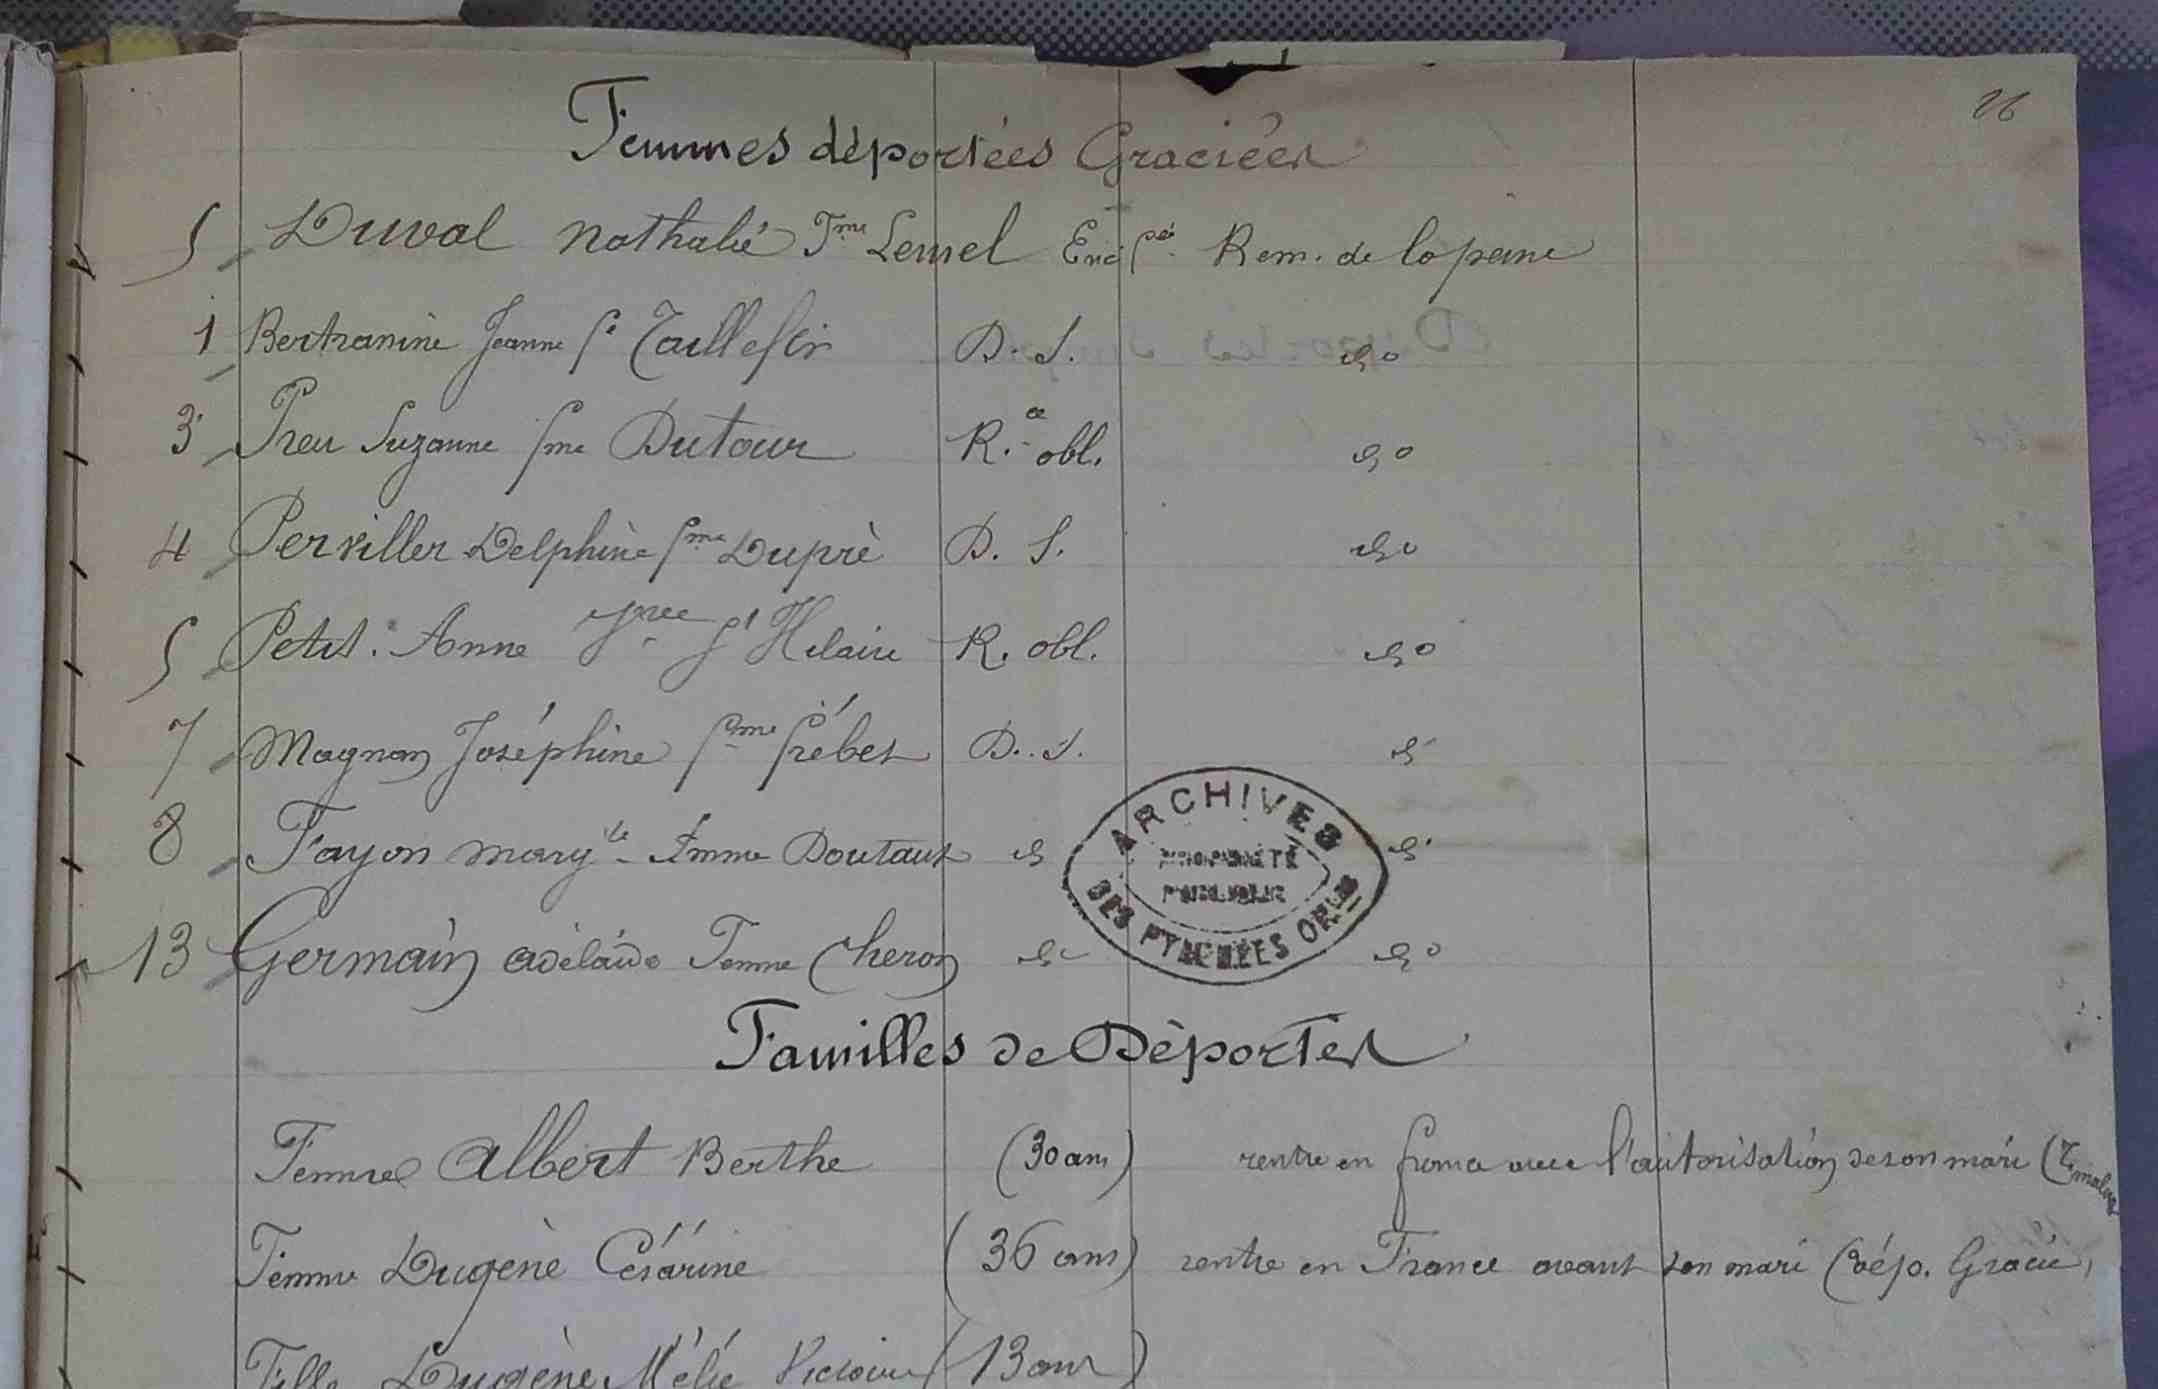 26
Femmes déportées Graciées
5 Duval Nathalie Fme Lemel Encte Rem. de la peine
1 Bertranine Jeanne fe Taillefer D. S. do
3 Preu Suzanne fme Dutour R.ce obl. do
4 Perviller Delphine fme Dupré D. S. do
5 Petit. Anne St Hilaire R. obl. do
7 Magnan Joséphine fme D. S. do
8 Fayon Marg te Femme Doutaux do do
13 Germain adélaïde Femme Cheron do do
ARCHIVES
PROPRIÉTÉ
PUBLIQUE
DES PYRÉNÉES ORles
Familles de Déportés
Femme Albert Berthe (30 ans) rentre en france avec l'autorisation de son mari
Femme Dugène Césarine (36 ans) rentre en France avant son mari (dép. Gracié)
Fille Dugène Mélie Victoire (13 ans)